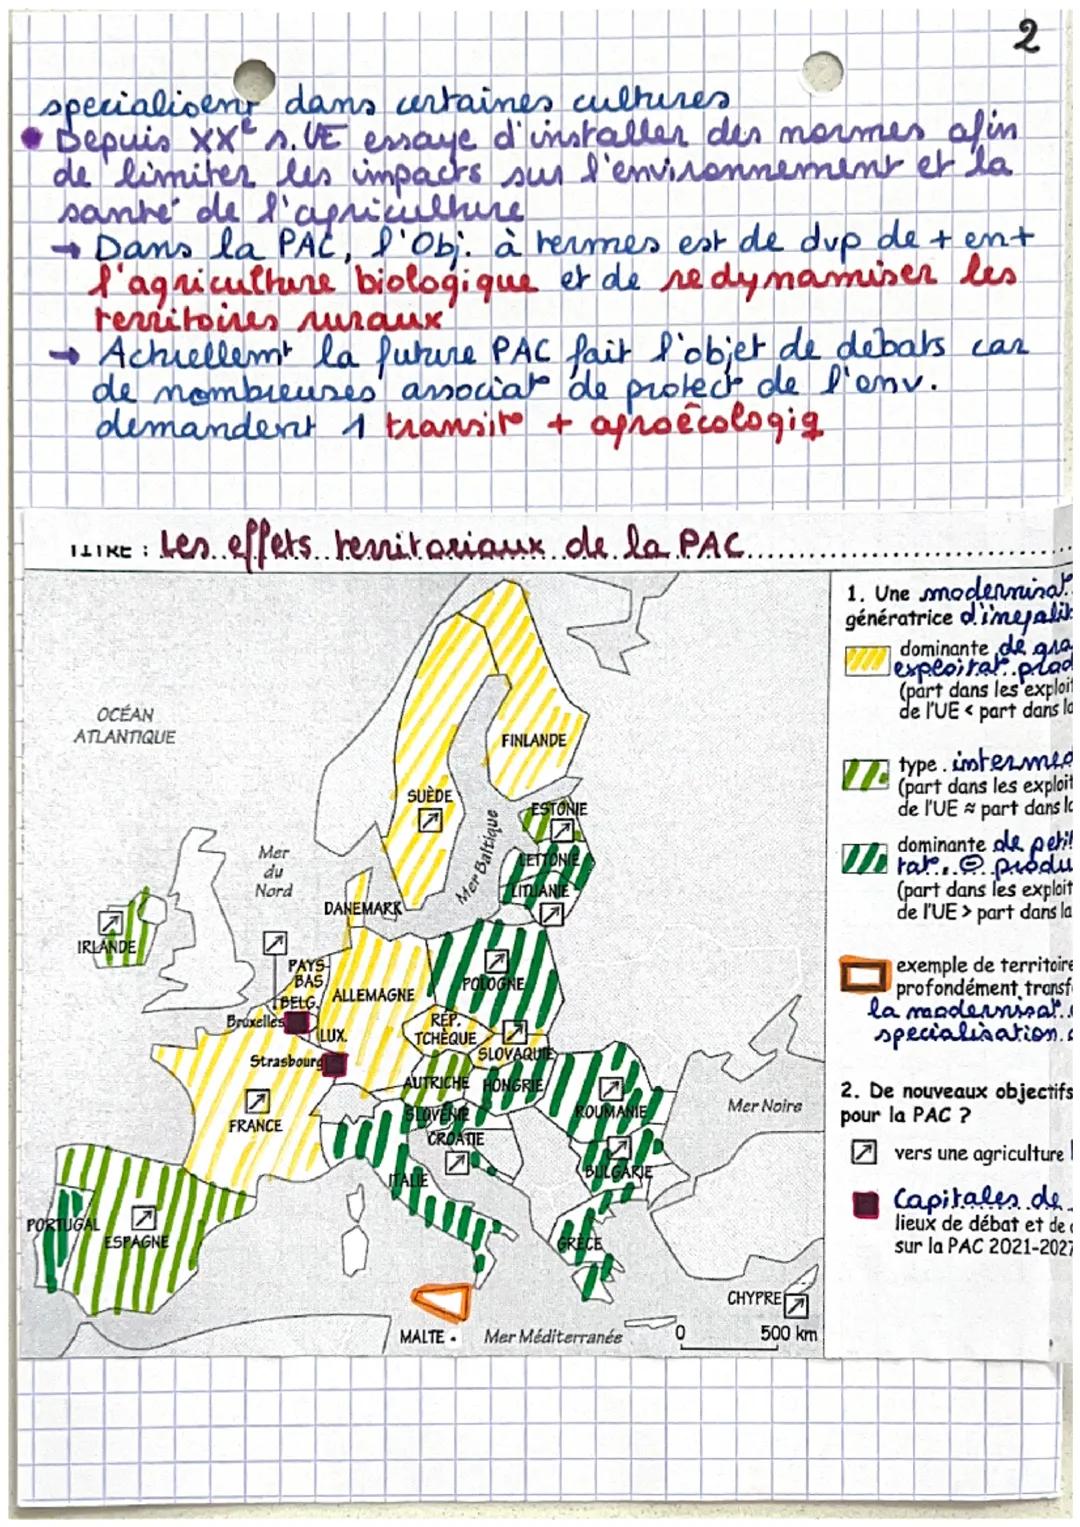 2
specialisent dans certaines cultures
Depuis XXe s. UE essaye d'installer des normes afin
de limiter les impacts sur l'environnement et la
santé de l'agriculture
→ Dans la PAC, l'Obj. à termes est de dvp de + en +
l'agriculture biologique et de redynamiser les
territoires ruraux
→ Actuellemt la future PAC fait l'objet de débats car
de nombreuses associat° de protect° de l'env.
demandent 1 transit° + agroécologiq
TITRE : Les effets territoriaux de la PAC
1. Une modernisat°
génératrice d'inégalit
dominante de gra
exploitat° prod
(part dans les exploit
de l'UE < part dans la
type intermed
(part dans les exploit
de l'UE ≈ part dans la
dominante de petit
tat° ⊖ produ
(part dans les exploit
de l'UE > part dans la
exemple de territoire
profondément transf
la modernisat°
spécialisation
2. De nouveaux objectifs
pour la PAC ?
vers une agriculture
Capitales de
lieux de débat et de
sur la PAC 2021-2027
OCÉAN
ATLANTIQUE
FINLANDE
SUÈDE
ESTONIE
Mer Baltique
LETTONIE
Mer
du
Nord
LITUANIE
DANEMARK
IRLANDE
PAYS-
BAS
POLOGNE
ALLEMAGNE
BELG.
Bruxelles
LUX.
RÉP.
TCHÈQUE
SLOVAQUIE
Strasbourg
AUTRICHE
HONGRIE
FRANCE
SLOVÉNIE
ROUMANIE
Mer Noire
CROATIE
BULGARIE
ITALIE
PORTUGAL
ESPAGNE
GRÈCE
CHYPRE
MALTE
Mer Méditerranée
0 500 km